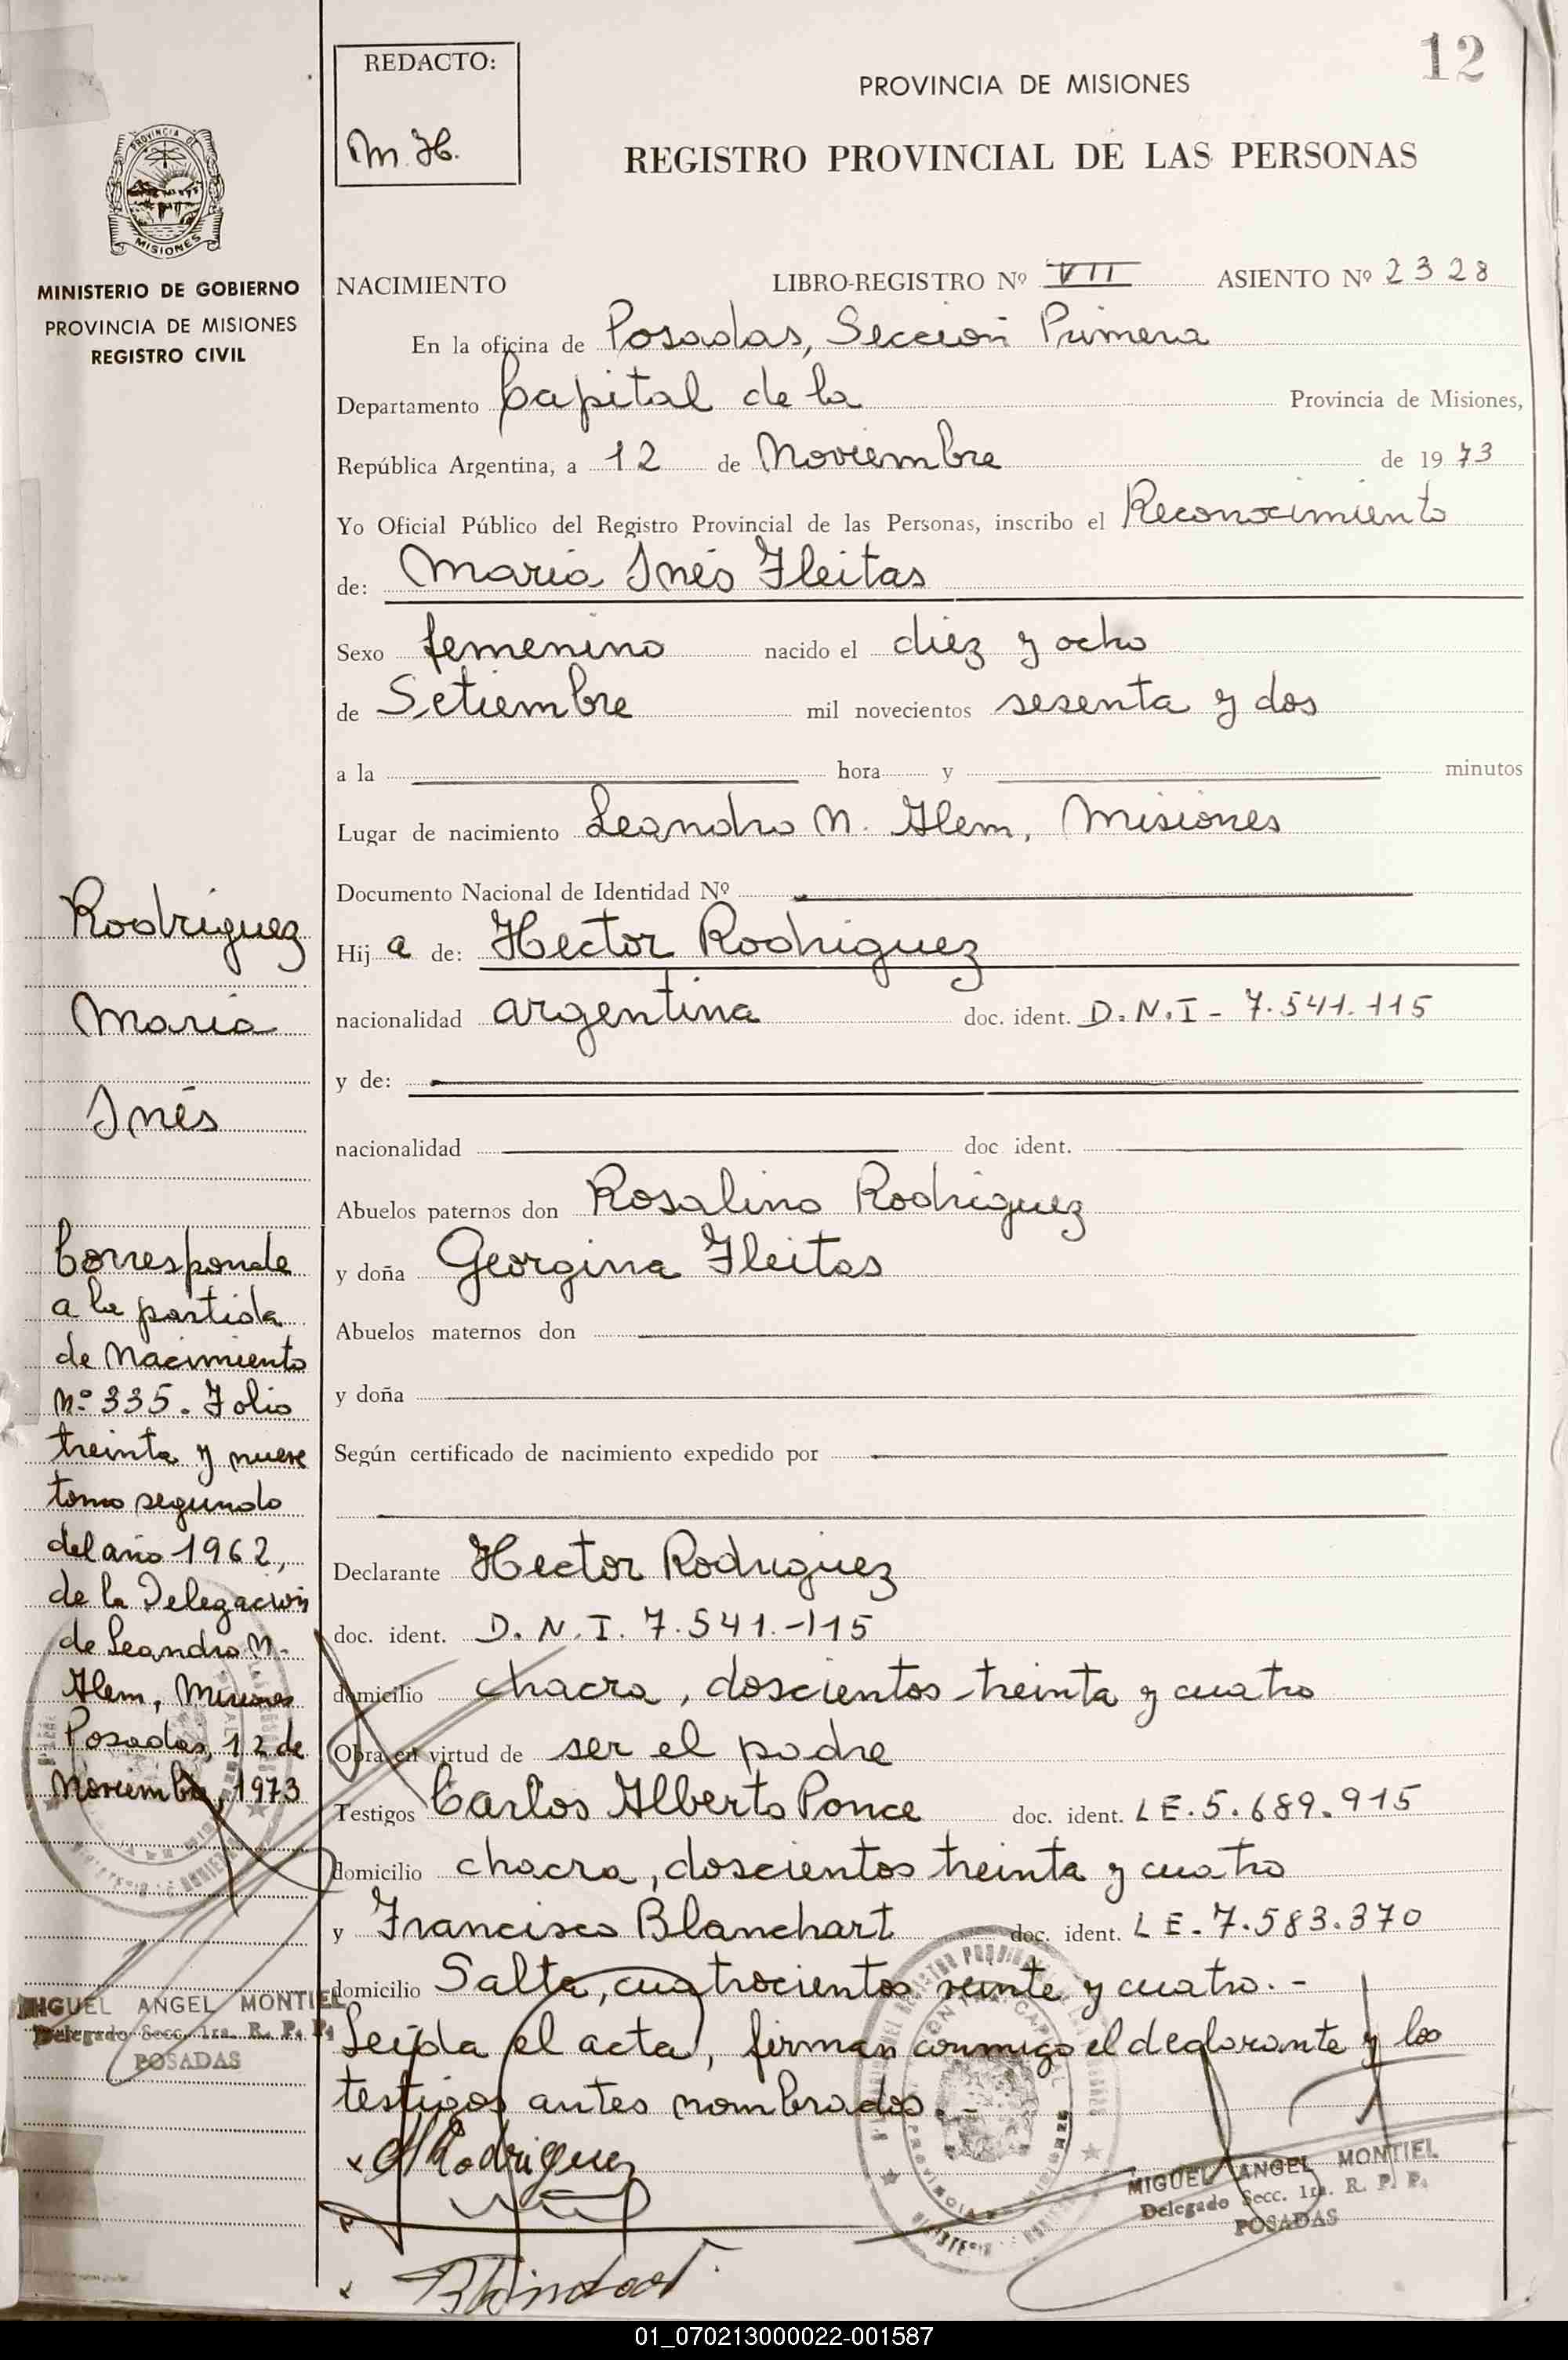 12
REDACTO:
M. H.
PROVINCIA DE MISIONES
REGISTRO PROVINCIAL DE LAS PERSONAS
PROVINCIA DE
MISIONES
MINISTERIO DE GOBIERNO
PROVINCIA DE MISIONES
REGISTRO CIVIL
NACIMIENTO LIBRO-REGISTRO Nº VII ASIENTO Nº 2328
En la oficina de Posadas, Sección Primera
Departamento Capital de la Provincia de Misiones,
República Argentina, a 12 de Noviembre de 1973
Yo Oficial Público del Registro Provincial de las Personas, inscribo el Reconocimiento
de: María Inés Fleitas
Sexo femenino nacido el diez y ocho
de Setiembre mil novecientos sesenta y dos
a la hora y minutos
Lugar de nacimiento Leandro N. Alem, Misiones
Documento Nacional de Identidad Nº
Hij a de: Hector Rodriguez
nacionalidad argentina doc. ident. D.N.I - 7.541.115
y de:
nacionalidad doc. ident.
Abuelos paternos don Rosalino Rodriguez
y doña Georgina Fleitas
Abuelos maternos don
y doña
Según certificado de nacimiento expedido por
Declarante Hector Rodriguez
doc. ident. D.N.I. 7.541.-115
domicilio chacra, doscientos treinta y cuatro
Obra en virtud de ser el padre
Testigos Carlos Alberto Ponce doc. ident. LE.5.689.915
domicilio chacra, doscientos treinta y cuatro
y Francisco Blanchart doc. ident. LE-7.583.370
domicilio Salta, cuatrocientos veinte y cuatro.-
Leída el acta, firman conmigo el declarante y los
testigos antes nombrados.-
Rodriguez
MIGUEL ANGEL MONTIEL
Delegado Secc. 1ra. R. P. P.
POSADAS
Rodriguez
María
Inés
Corresponde
a la partida
de Nacimiento
Nº 335. Folio
treinta y nueve
tomo segundo
del año 1962,
de la Delegación
de Leandro N.
Alem, Misiones
Posadas, 12 de
Noviembre, 1973
MIGUEL ANGEL MONTIEL
Delegado Secc. 1ra. R. P. P.
POSADAS
01_070213000022-001587